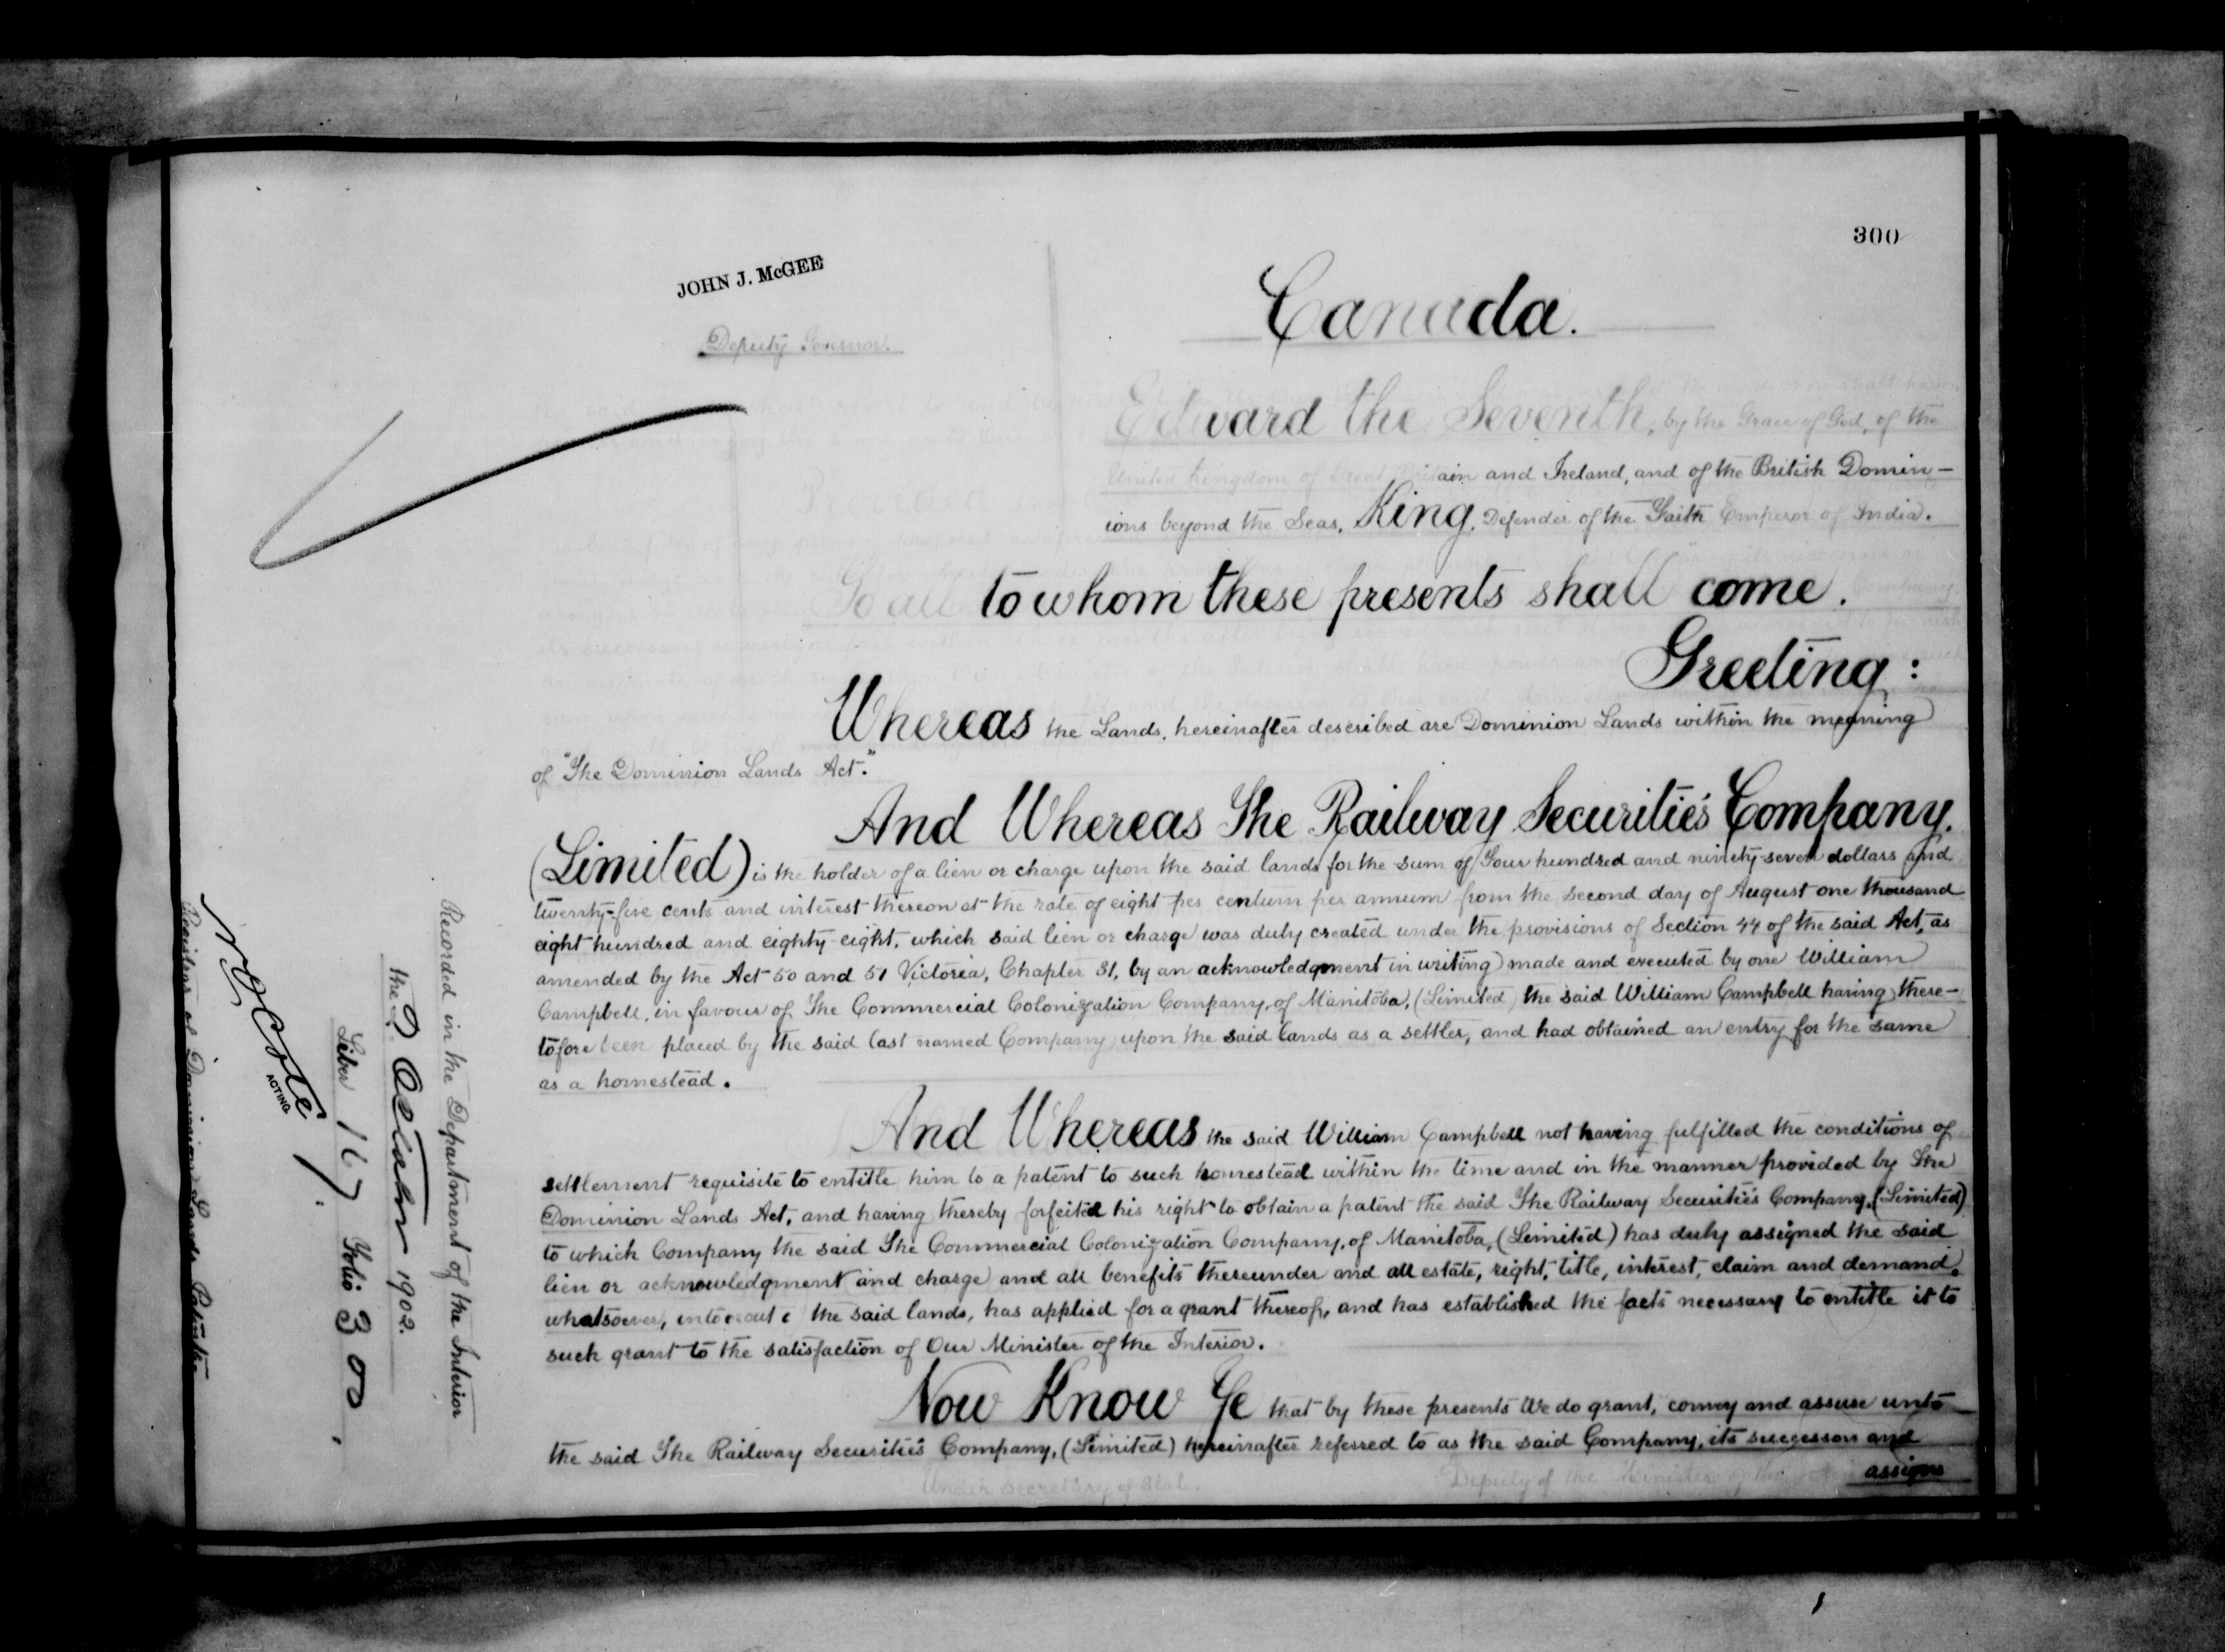 300
JOHN J. McGEE
Deputy Governor.
Canada.
Edward the Seventh, by the Grace of God, of the
United Kingdom of Great Britain and Ireland, and of the British Domin-
ions beyond the Seas, King, Defender of the Faith Emperor of India.
To all to whom these presents shall come.
Greeting:
Whereas the Lands, hereinafter described are Dominion Lands within the meaning
of "The Dominion Lands Act."
And Whereas The Railway Securities Company,
(Limited) is the holder of a lien or charge upon the said lands for the sum of Four hundred and ninety-seven dollars and
twenty-five cents and interest thereon at the rate of eight per centum per annum from the second day of August one thousand
eight hundred and eighty-eight, which said lien or charge was duly created under the provisions of Section 44 of the said Act, as
amended by the Act 50 and 51 Victoria, Chapter 31, by an acknowledgment in writing made and executed by one William
Campbell, in favour of The Commercial Colonization Company, of Manitoba, (Limited) the said William Campbell having there-
tofore been placed by the said last named Company upon the said lands as a settler, and had obtained an entry for the same
as a homestead.
And Whereas the said William Campbell not having fulfilled the conditions of
settlement requisite to entitle him to a patent to such homestead within the time and in the manner provided by The
Dominion Lands Act, and having thereby forfeited his right to obtain a patent the said The Railway Securities Company, (Limited)
to which Company the said The Commercial Colonization Company, of Manitoba, (Limited) has duly assigned the said
lien or acknowledgment and charge and all benefits thereunder and all estate, right, title, interest, claim and demand
whatsoever, into or out the said lands, has applied for a grant thereof, and has established the facts necessary to entitle it to
such grant to the satisfaction of Our Minister of the Interior.
Now Know Ye that by these presents We do grant, convey and assure unto
the said The Railway Securities Company, (Limited) hereinafter referred to as the said Company, its successors and
assigns
Under Secretary of State.
Deputy of the Minister of the
Recorded in the Department of the Interior
the 9 October 1902.
Liber 167 Folio 300
N O Coté
ACTING
Registrar of Dominion Lands Patents